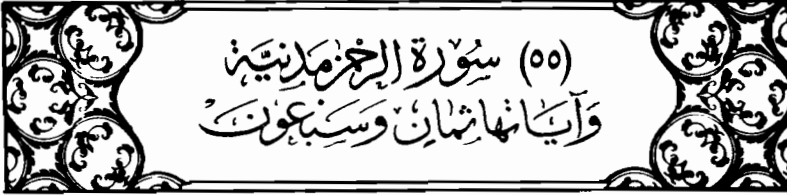 (٥٥) سُورَة الرَّحْمٰن مَدَنِيَّة
وَآيَاتُهَا ثَمَانٍ وَسَبْعُونَ